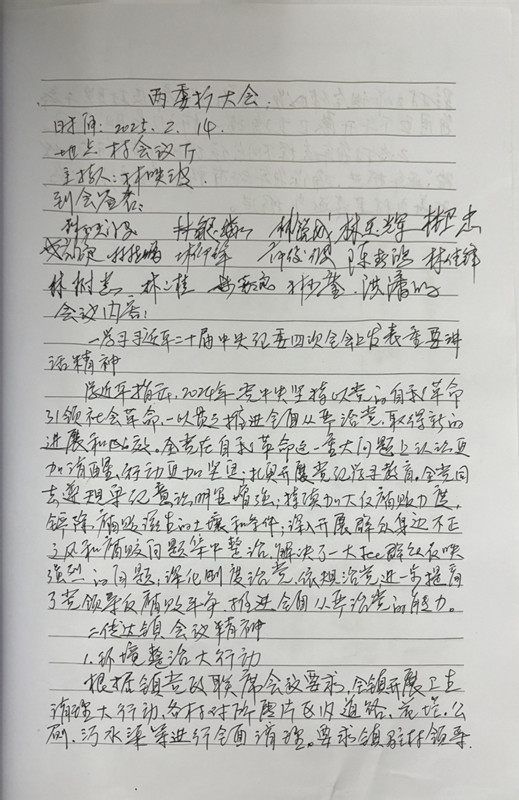 两委扩大会.
时间: 2025. 2. 14.
地点: 村会议厅
主持人: 林映波.
到会签名:
林映波 林敏 林 林正辉 林 忠
林 林 林 陈 林佳锋
林树 林 桂 洪
会议内容:
一.学习习近平二十届中央纪委四次全会上发表重要讲
话精神
习近平指示, 2024年党中央坚持以党的自我革命
引领社会革命,一以贯之推进全面从严治党,取得新的
进展和成效。全党在自我革命这一重大问题上认识更
加清醒、行动更加坚定,扎实开展党纪学习教育。全党同
志遵规守纪意识明显增强;持续加大反腐败力度,
铲除腐败滋生的土壤和条件;深入开展群众身边不正
之风和腐败问题集中整治,解决了一大批群众反映
强烈的问题;深化制度治党、依规治党,进一步提高
了党领导反腐败斗争、推进全面从严治党的能力。
二.传达镇会议精神
1.环境整治大行动
根据镇党政联席会议要求,全镇开展卫生
清理大行动,各村对所属片区内道路、花坛、公
厕、污水渠等进行全面清理。要求镇驻村领导